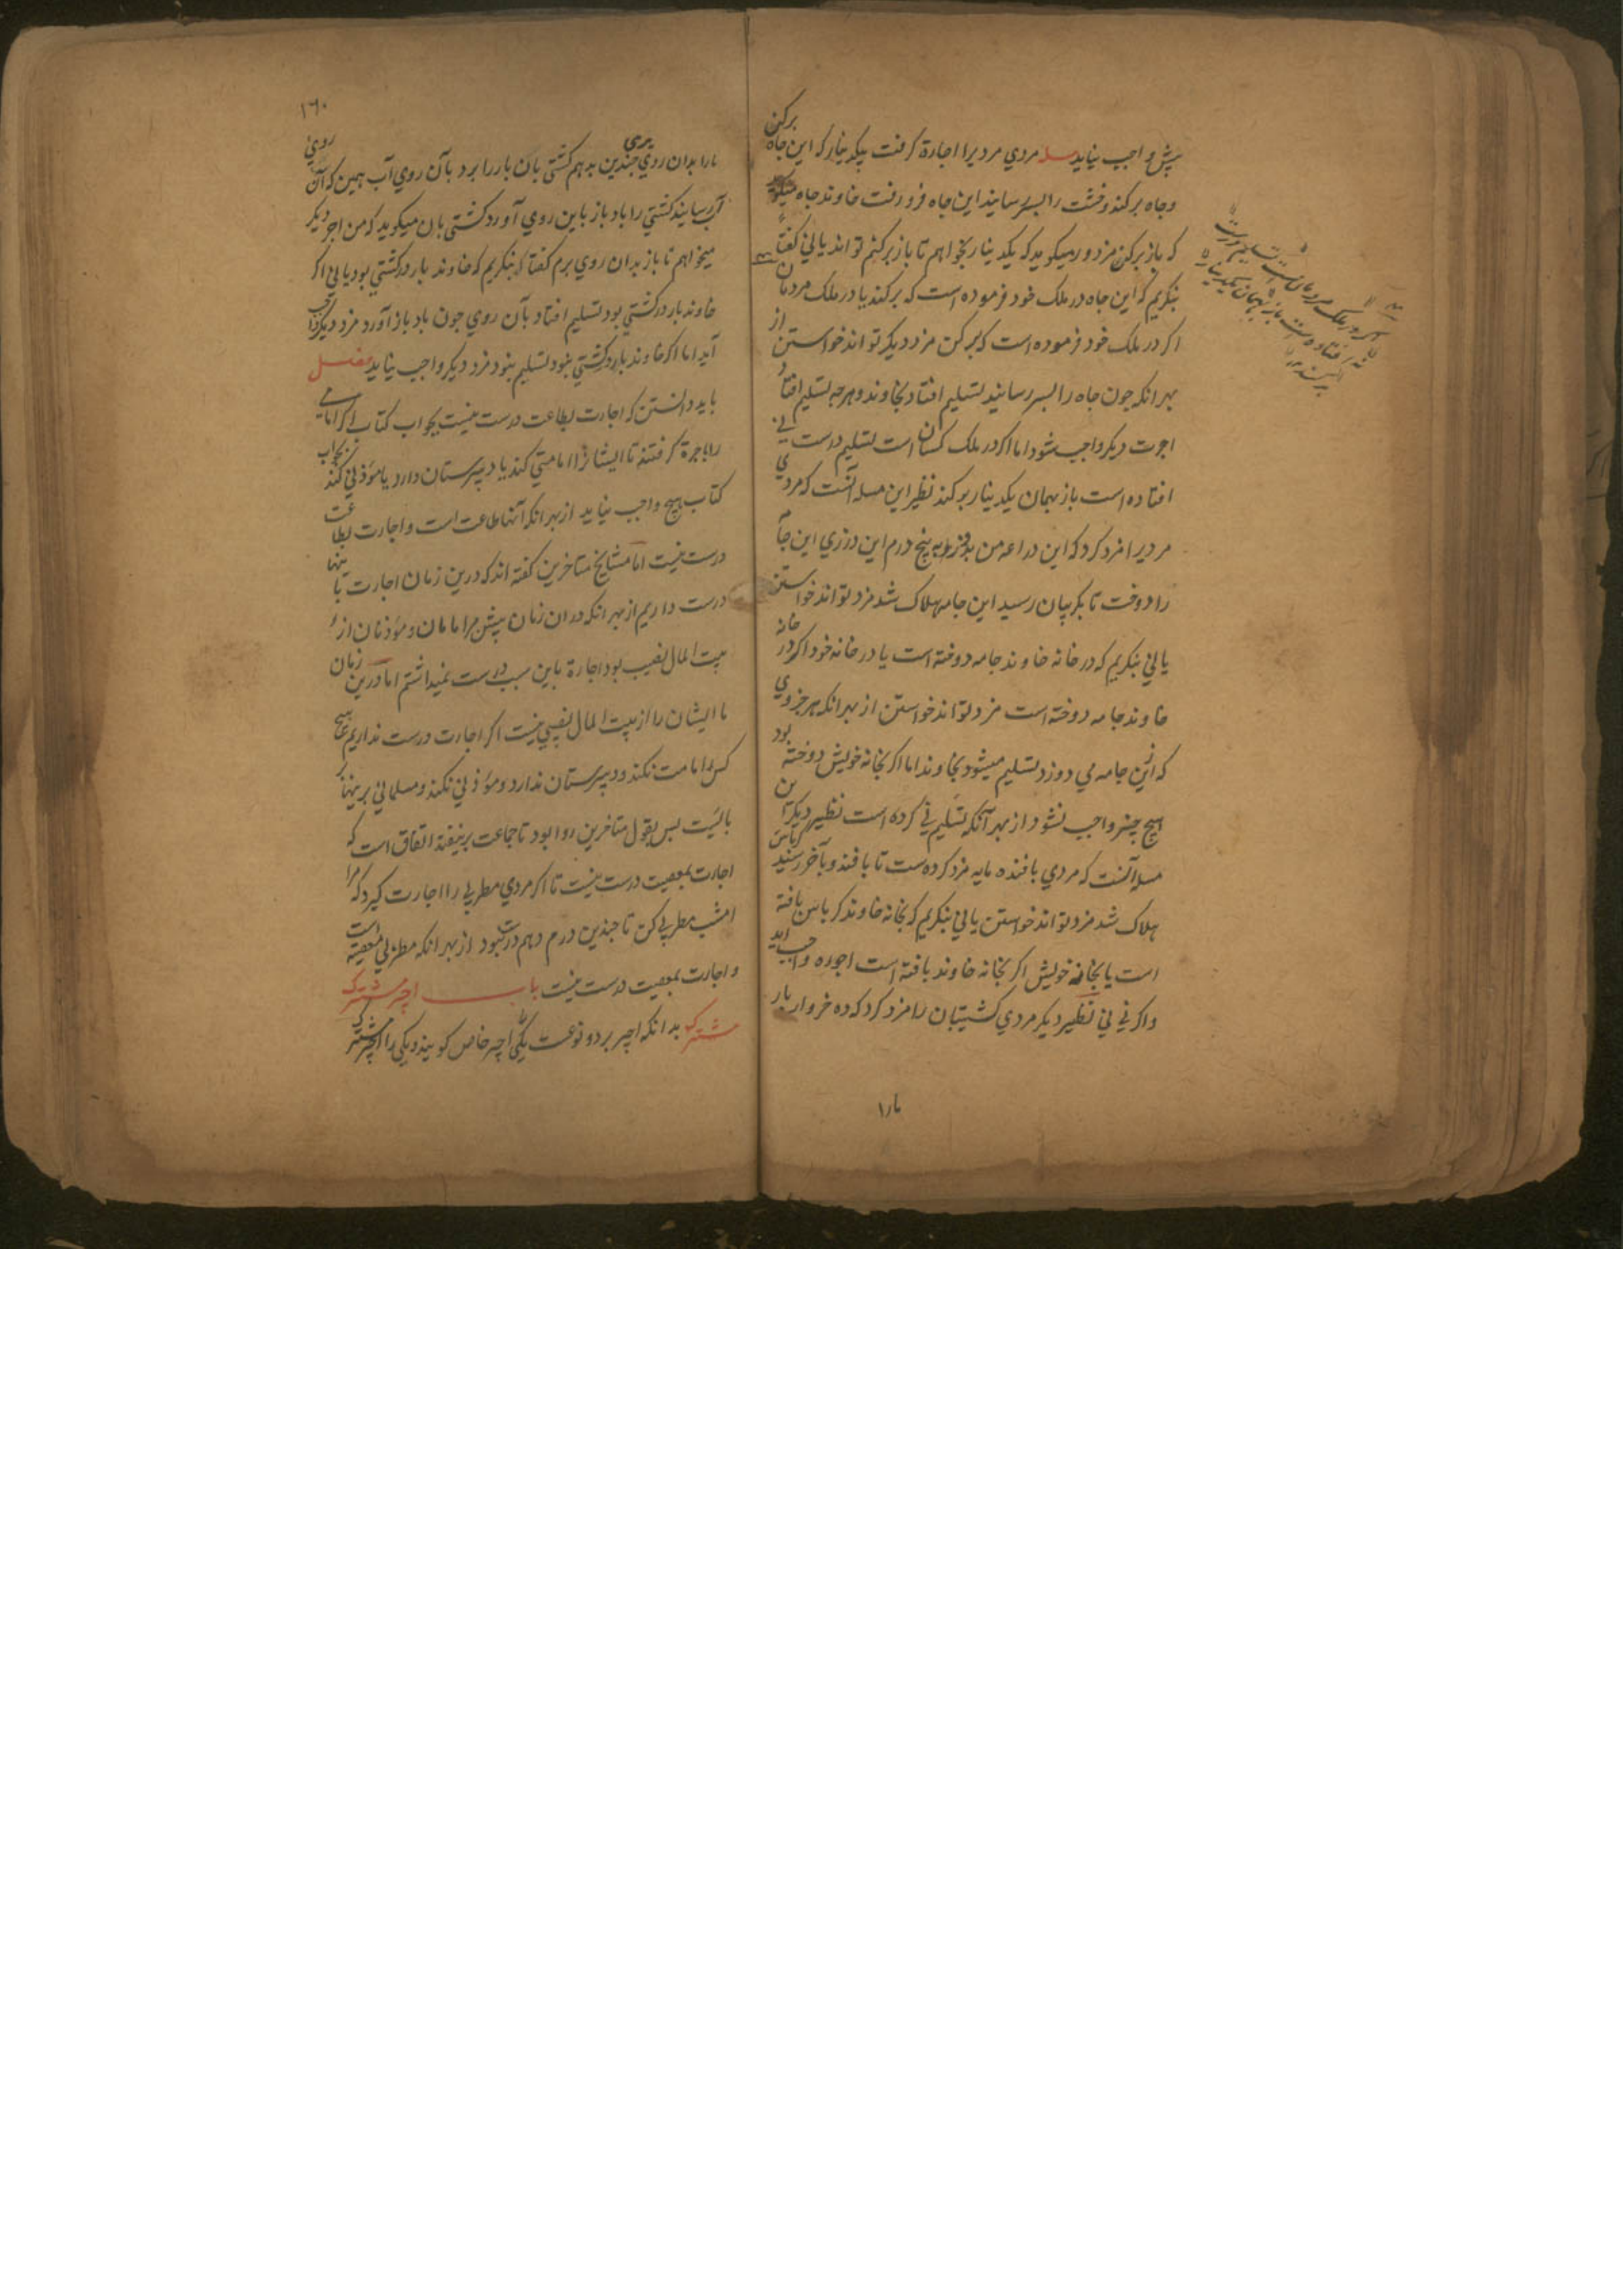 پیش واجب نیاید مسله مردي مردیرا اجارة کرفت بیکدینار که این جاه برکن
وجاه برکند وخشت را بسر رسانید این جاه فرو رفت خاوند جاه میکوید
که باز برکن مزدور میکوید که یکدینار بخواهم تا باز برکنم تواند یا ني کفتا
بنکریم که این جاه در ملک خود فرموده است که برکند یا در ملک مردمان
اکر در ملک خود فرموده است که برکن مزد دیکر تواند خواستن از
بهر انکه جون جاه را بسر رسانید تسلیم افتاد بخاوند وهرجه تسلیم افتاد
اجرت دیکر واجب شود اما اکر در ملک کسان است تسلیم درست ني
افتاده است باز بهمان یکدینار برکند نظیر این مسله آنست که مردي
مردیرا مزد کرد که این دراعه من بدوز به پنج درم این درزي این جامه
را دوخت تا بکریبان رسید این جامه هلاک شد مزد تواند خواستن
یا ني بنکریم که در خانه خاوند جامه دوخته است یا در خانه خود اکر در خانه
خاوند جامه دوخته است مزد تواند خواستن از بهر انکه هر جزوي
که ازین جامه مي دوزد تسلیم میشود بخاوند اما اکر بخانه خویش دوخته بود
هیچ جیز واجب نشود از بهر آنکه تسلیم ني کرده است نظیر دیکر این
مسله آنست که مردي بافنده مایه مزد کرده ست تا بافند وبآخر رسید کرباس
هلاک شد مزد تواند خواستن یا ني بنکریم که بخانه خاوند کرباس بافته
است یا بخانه خویش اکر بخانه خاوند بافته است اجوره واجب اید
واکر ني ني نظیر دیکر مردي کشتیبان را مزد کرد که ده خروار بار
مارا
اکر در ملک مردمان است تسلیم درست
نه افتاد ست باز بهمان یکدینار
برکند
١٦٠
مارا بدان روي بري جندین بدهم کشتي بان بار را برد بآن روي آب همین که آن روي
آب رسانید کشتي را باد باز باین روي آورد کشتي بان میکوید که من اجر دیکر
میخواهم تا باز بدان روي برم کفتا که بنکریم که خاوند بار در کشتي بود یا ني اکر
خاوند بار در کشتي بود تسلیم افتاد بآن روي جون باد باز آورد مزد دیکر واجب
آید اما اکر خاوند بار در کشتي نبود تسلیم نبود مزد دیکر واجب نیاید فصل
باید دانستن که اجارت بطاعت درست نیست بجواب کتاب اکر امامي
را باجرة کرفتند تا ایشانرا امامتي کند یا دبیرستان دارد یا مؤذني کند بجواب
کتاب هیچ واجب نیاید از بهر انکه آنها طاعت است واجارت بطاعت
درست نیست اما مشایخ متاخرین کفته اند که درین زمان اجارت باینها
درست داریم از بهر انکه در ان زمان پیش مر امامان ومؤذنان از
بیت المال نصیب بود اجارة باین سبب درست نمیداشتم اما درین زمان
ما ایشان را از بیت المال نصیبي نیست اکر اجارت درست نداریم هیچ
کس امامت نکند ودبیرستان ندارد ومؤذني نکند ومسلماني برینها بر
بائیست بس بقول متاخرین روا بود تا جماعت برنیفتد اتفاق است که
اجارت بمعصیت درست نیست تا اکر مردي مطربي را اجارت کیرد که مرا
امشب مطربي کن تا جندین درم دهم درست نبود از بهر انکه مطربي معصیة است
واجارت بمعصیت درست نیست باب اجیر مشترک
مشترک بدانکه اجیر بر دو نوعست یکي را اجیر خاص کویند ویکي را اجیر مشترک